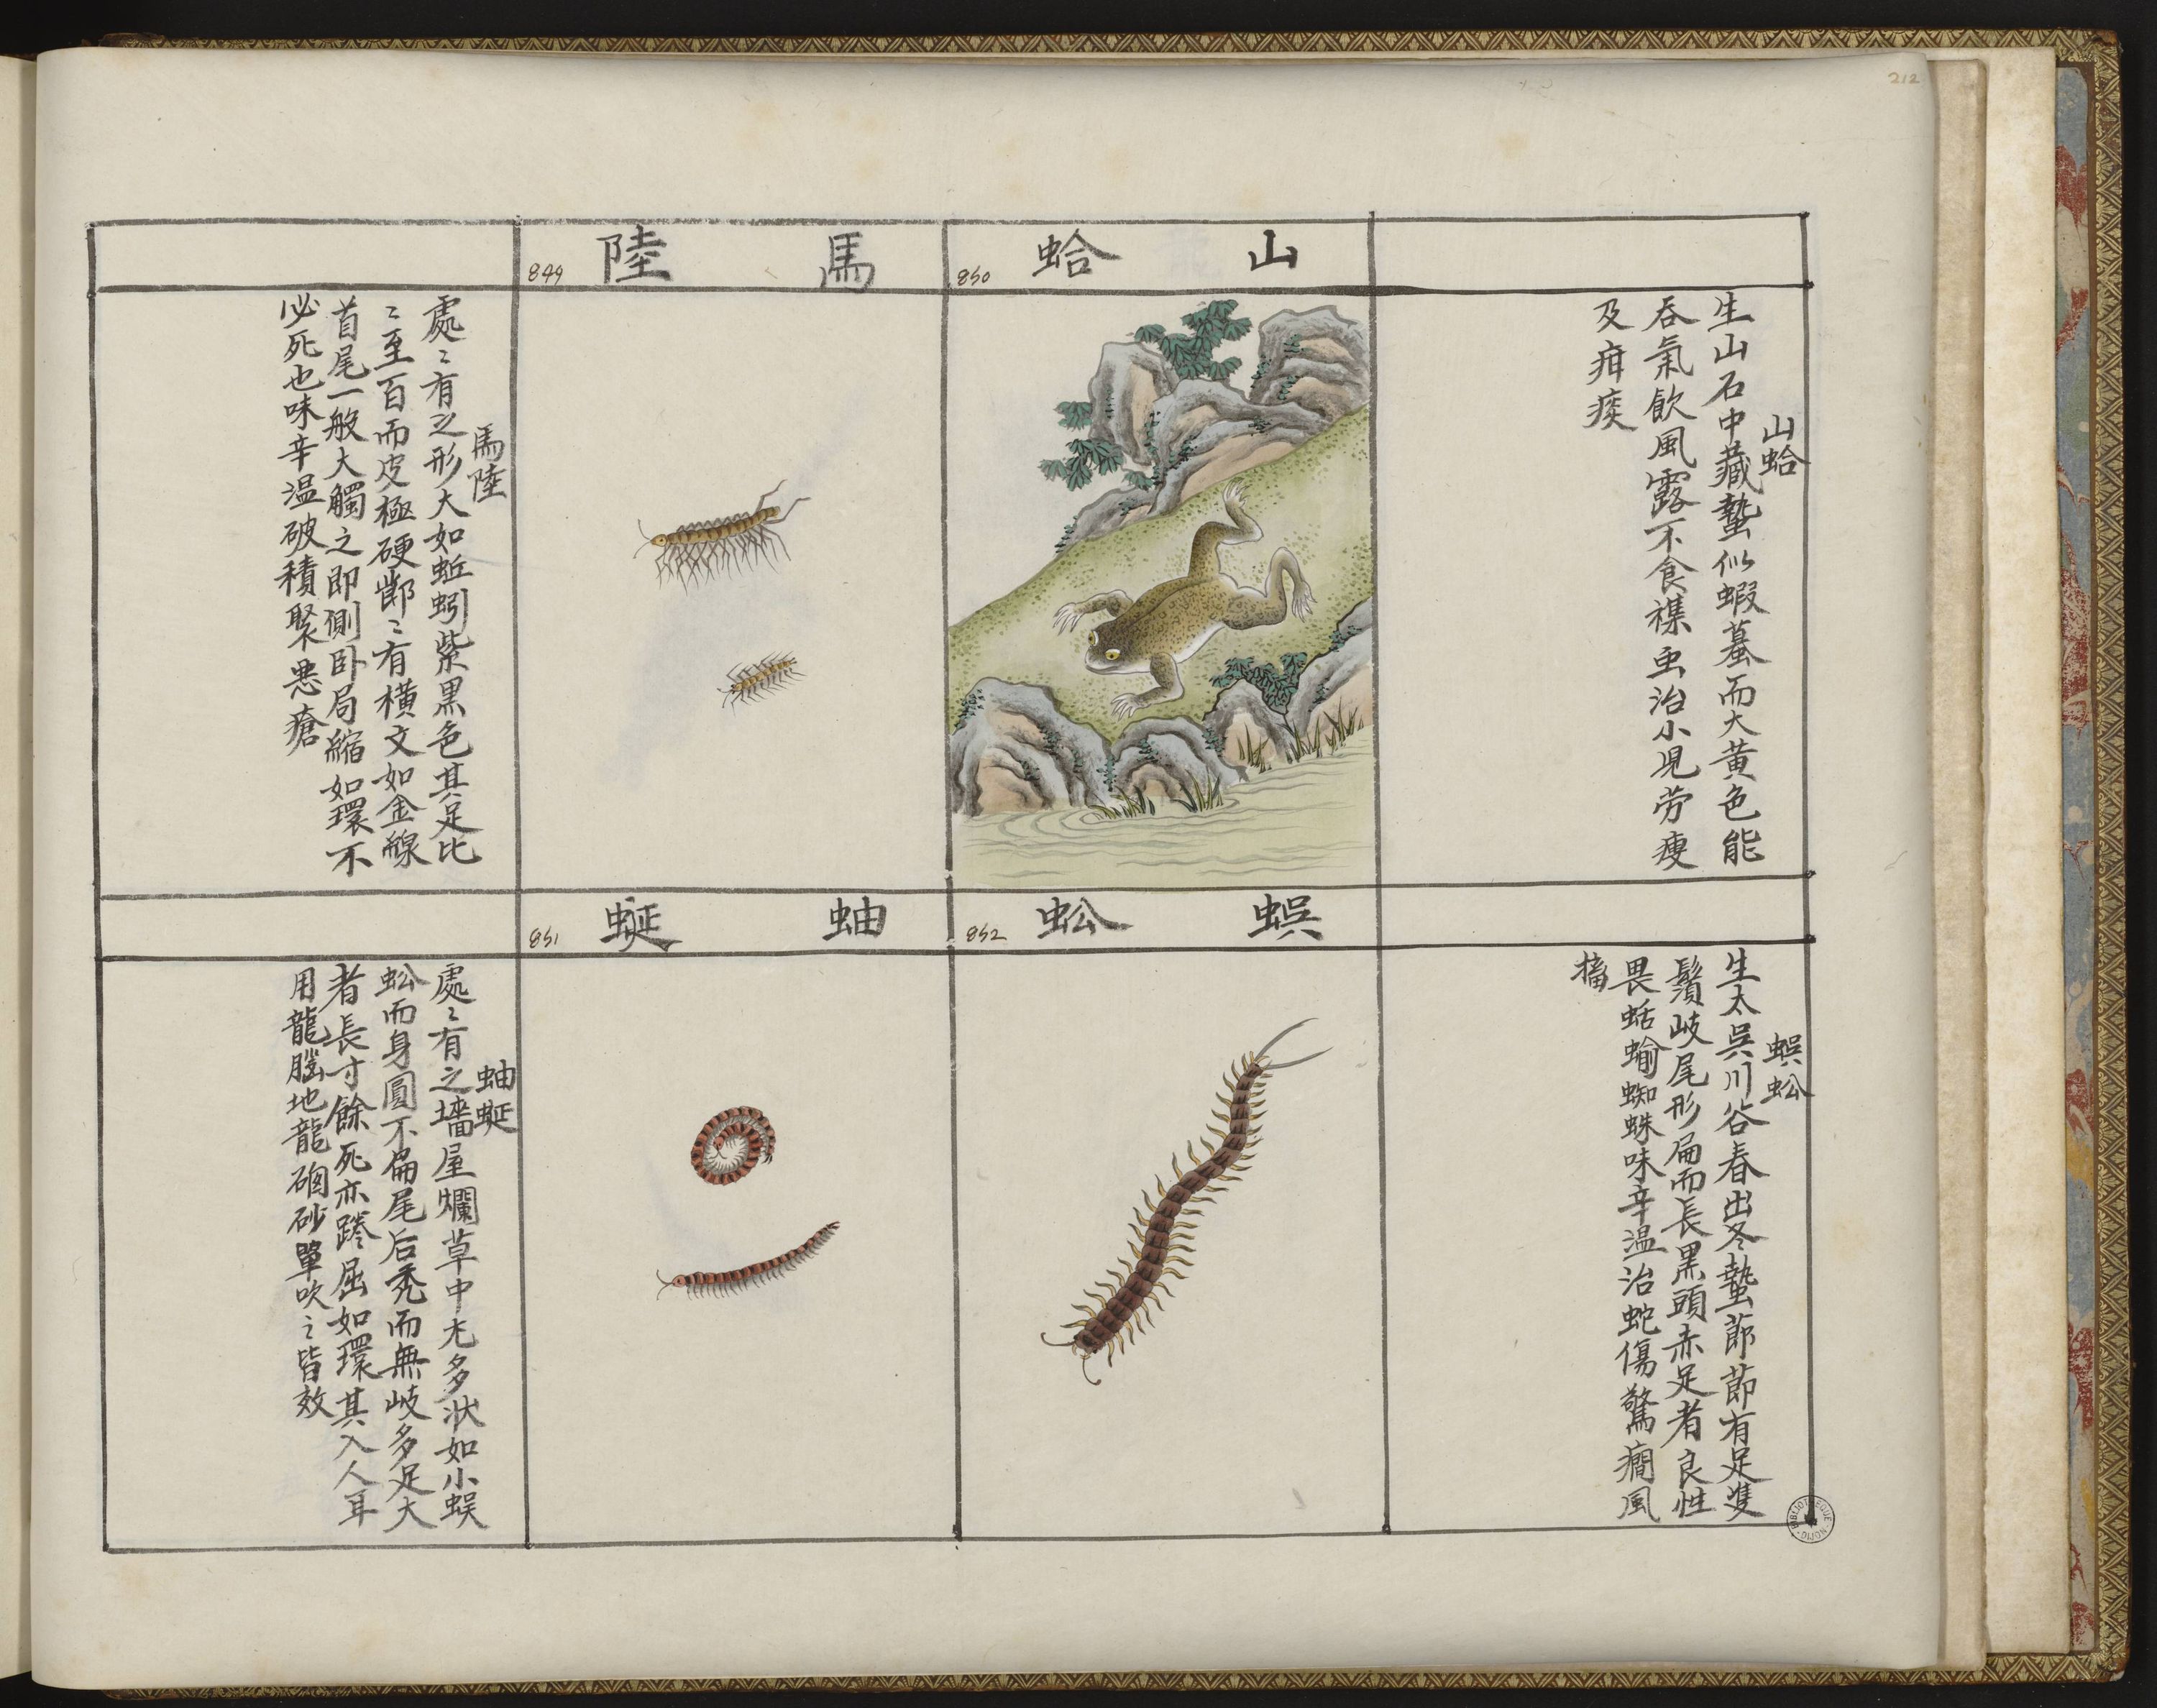 212
山蛤
850
馬陸
849
山蛤
生山石中藏蟄似蝦蟇而大黃色能
吞氣飲風露不食襍虫治小児劳瘦
及疳痰
馬陸
處〻有之形大如蚯蚓紫黑色其足比
〻至百而皮極硬節〻有橫文如金線
首尾一般大觸之即側卧局縮如環不
必死也味辛温破積聚惡瘡
蜈蚣
852
蚰蜒
851
蜈蚣
生太吳川谷春出冬蟄節節有足雙
鬚岐尾形扁而長黑頭赤足者良性
畏蛞蝓蜘蛛味辛温治蛇傷驚癇風
搐
蚰蜒
處〻有之墻屋爛草中尤多状如小蜈
蚣而身圓不扁尾后秃而無岐多足大
者長寸餘死亦踡屈如環其入人耳
用龍腦地龍硇砂單吹之皆效
BIBLIOTHEQUE